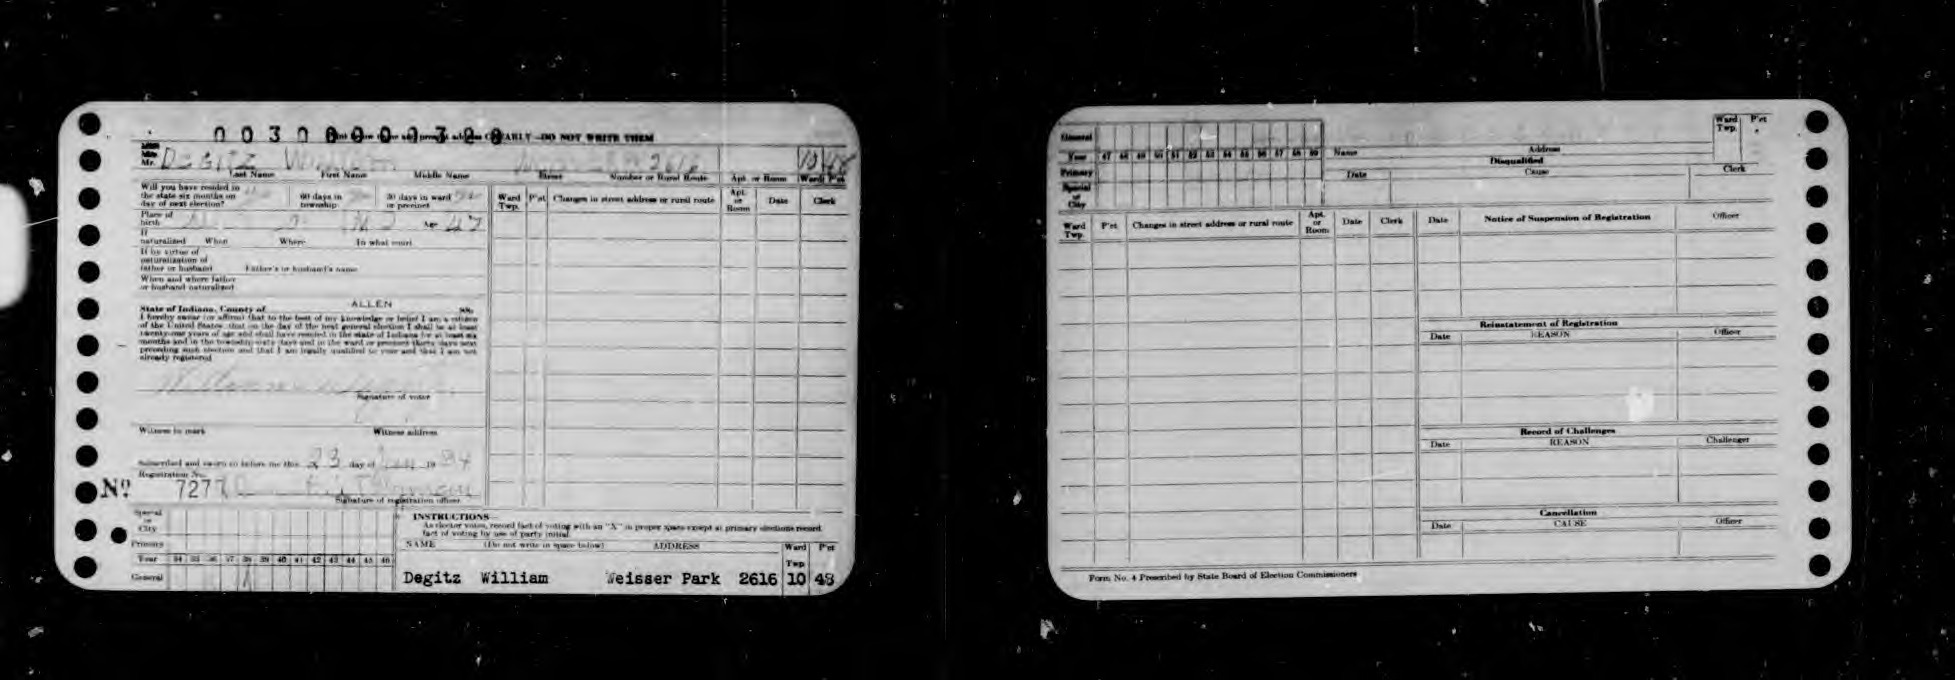 0030000300
PRINT your name and present address CLEARLY—DO NOT WRITE THEM
Miss
Mrs.
Mr. DEGITZ WILLIAM 2616 10 48
Last Name First Name Middle Name Street Number or Rural Route Apt. or Room Ward P'ct
Will you have resided in the state six months on day of next election? 60 days in township 30 days in ward or precinct
Ward Twp. P'ct Changes in street address or rural route Apt. or Room Date Clerk
Place of birth Age 47
If naturalized When Where In what court
If by virtue of naturalization of father or husband Father's or husband's name
When and where father or husband naturalized
State of Indiana, County of ALLEN SS:
I hereby swear (or affirm) that to the best of my knowledge or belief I am a citizen
of the United States, that on the day of the next general election I shall be at least
twenty-one years of age and shall have resided in the state of Indiana for at least six
months and in the township sixty days and in the ward or precinct thirty days next
preceding such election and that I am legally qualified to vote and that I am not
already registered
Signature of voter
Witness to mark Witness address
Subscribed and sworn to before me this 23 day of 19 34
Registration No.
Nº 7277
Signature of registration officer
Special or City
Primary
Year 34 35 36 37 38 39 40 41 42 43 44 45 46
General
INSTRUCTIONS
As elector votes, record fact of voting with an "X" in proper space except at primary elections record
fact of voting by use of party initial.
NAME (Do not write in space below) ADDRESS Ward Twp. P'ct
Degitz William Weisser Park 2616 10 48
General
Year 47 48 49 50 51 52 53 54 55 56 57 58 59
Primary
Special or City
Name Address Ward Twp. P'ct
Disqualified
Date Cause Clerk
Ward Twp. P'ct Changes in street address or rural route Apt. or Room Date Clerk
Date Notice of Suspension of Registration Officer
Reinstatement of Registration
Date REASON Officer
Record of Challenges
Date REASON Challenger
Cancellation
Date CAUSE Officer
Form No. 4 Prescribed by State Board of Election Commissioners